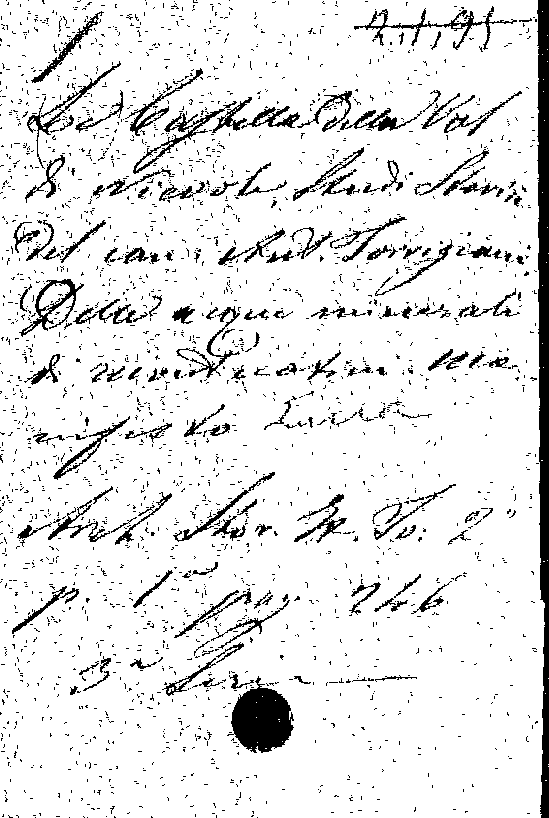 2.1.95
Le Castella della Val
di Nievole, Studi Storici
del can. Ant. Torrigiani.
Delle acque minerali
di Montecatini. Ma
nifesto
Arch. Stor. It. To: 2°
p. 1ª pag. 246
3ª Serie